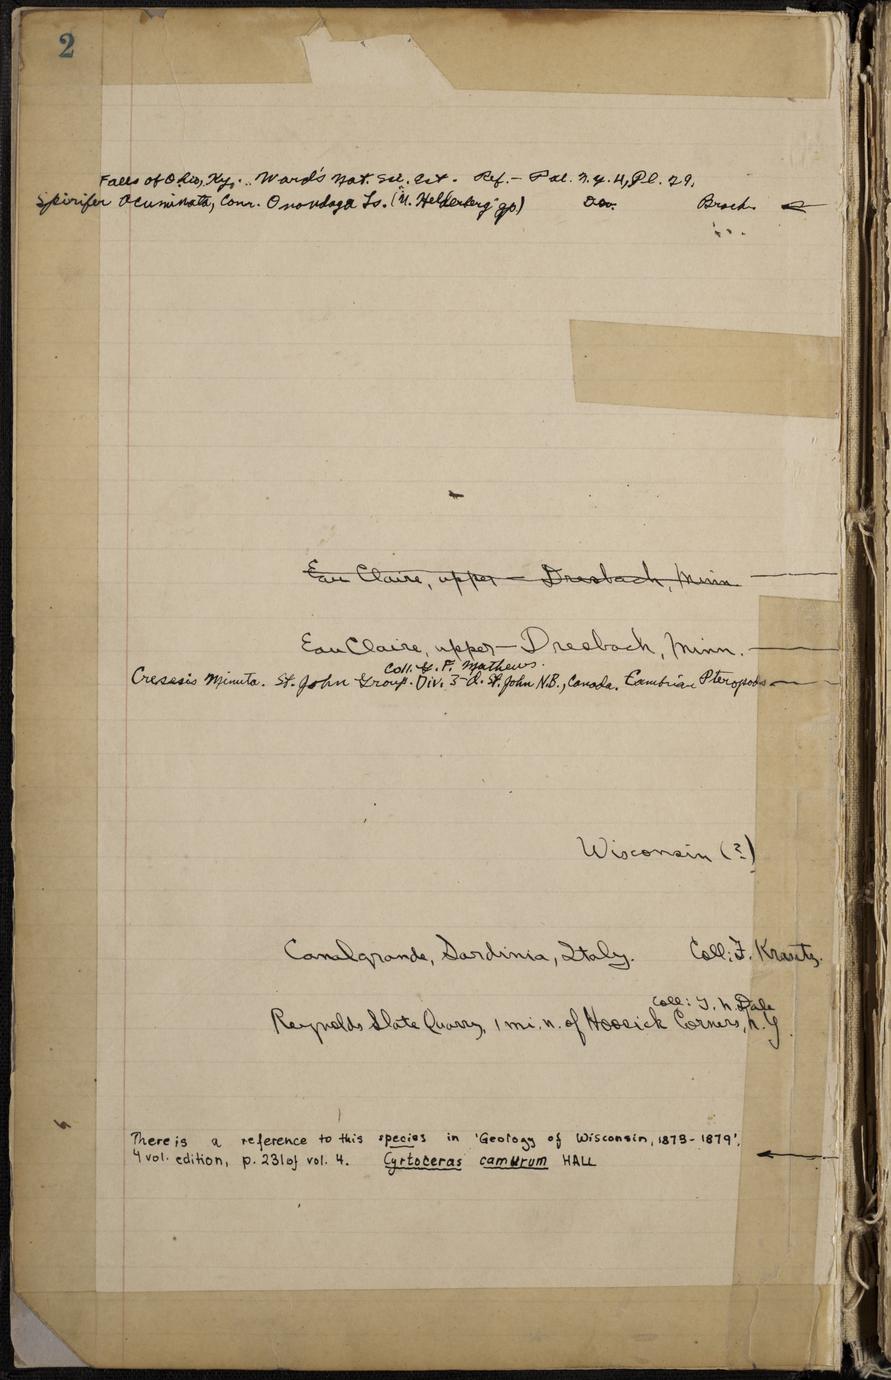 2
Falls of Ohio, Ky. .. Ward's Nat. Sci. Est. Ref. - Pal. N.Y. 4, Pl. 29.
Spirifer Acuminata, Conr. Onondaga Ls. ("U. Helderberg" gp.) Dev. Brach.
Eau Claire, upper - Dresbach, Minn
Eau Claire, upper - Dresbach, Minn.
Coll. G. F. Mathews.
Creseis Minuta. St. John Group. Div. 3-d. St. John N.B., Canada. Cambrian Pteropods
Wisconsin (?)
Canalgrande, Sardinia, Italy. Coll: F. Krantz.
Coll: T. N. Dale
Reynolds Slate Quarry, 1 mi. n. of Hoosick Corners, N.Y.
There is a reference to this species in 'Geology of Wisconsin, 1873-1879',
4 vol. edition, p. 231 of vol. 4. Cyrtoceras camurum HALL